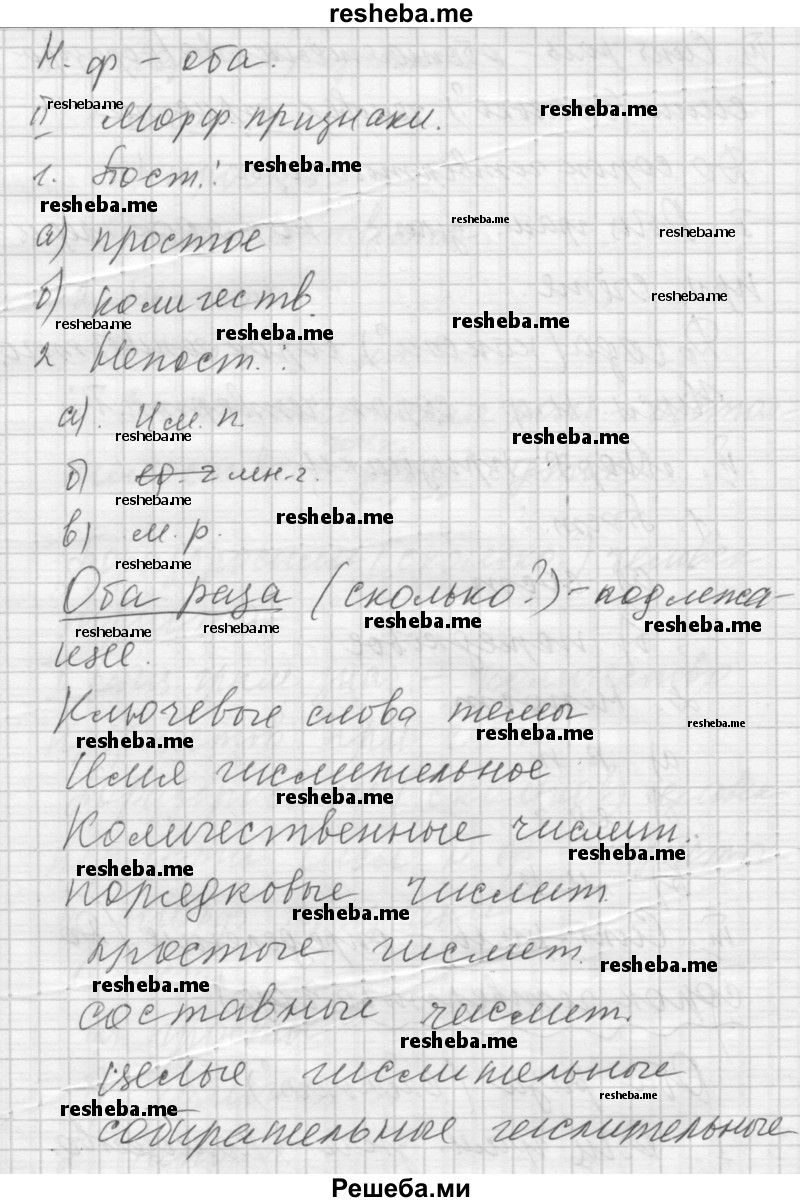 resheba.me
Н. ф – оба.
resheba.me
II Морф. признаки. resheba.me
1. Пост.: resheba.me
resheba.me
resheba.me
а) простое resheba.me
resheba.me
б) количеств.
resheba.me resheba.me resheba.me
2. Непост.:
а). Им. п.
resheba.me resheba.me
б) мн. ч.
resheba.me resheba.me
в) м. р.
resheba.me
Оба раза (сколько?) – подлежа-
resheba.me resheba.me resheba.me resheba.me
щее.
Ключевые слова темы
resheba.me resheba.me resheba.me
Имя числительное
resheba.me
Количественные числит.
resheba.me resheba.me
порядковые числит.
resheba.me
простые числит.
resheba.me resheba.me
составные числит.
resheba.me
целые числительные
resheba.me resheba.me
собирательные числительные
Решеба.ми